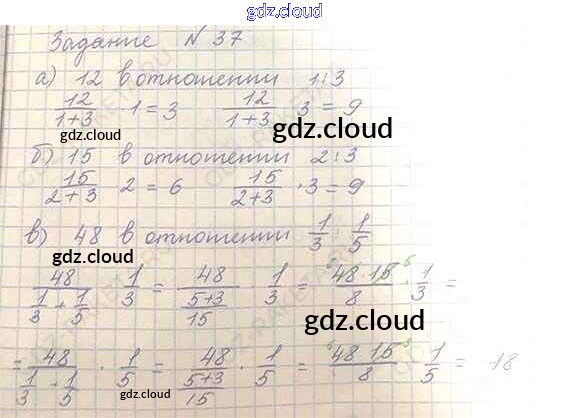 gdz.cloud
Задание N 37
а) 12 в отношении 1:3
12/(1+3) 1 = 3 12/(1+3) 3 = 9
gdz.cloud
gdz.cloud
б) 15 в отношении 2:3
15/(2+3) 2 = 6 15/(2+3) · 3 = 9
gdz.cloud
в) 48 в отношении 1/3 : 1/5
gdz.cloud
48/(1/3 + 1/5) · 1/3 = 48/((5+3)/15) · 1/3 = 48·15/8 · 1/3 =
gdz.cloud
gdz.cloud
= 48/(1/3 + 1/5) · 1/5 = 48/((5+3)/15) · 1/5 = 48 15/8 · 1/5 = 18
gdz.cloud
gdz.cloud